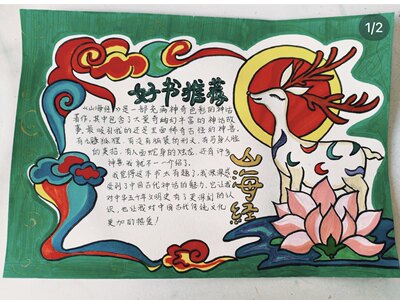 1/2
好书推荐
《山海经》是一部充满神奇色彩的神话
著作,其中包含了大量奇幻丰富的神话故
事,最吸引我的还是里面稀奇古怪的神兽,
有九尾狐狸,有没有脑袋的刑天,有鸟身人脸
的吴诏,有人面蛇身的烛龙,还有许多
神兽我就不一一介绍了。
我觉得这本书太有趣了,我深深感
受到了中国古代神话的魅力,它让我
对中华五千年文明史有了更深刻的认
识,也让我对中国古代传统文化
更加的热爱!
山海经